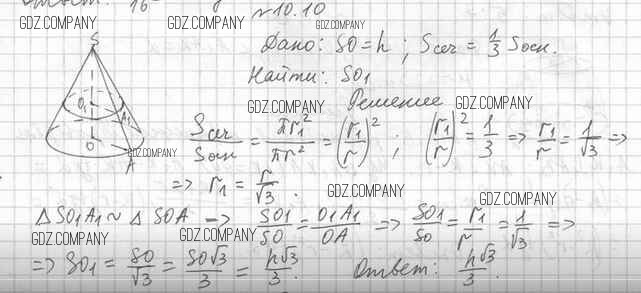 №10.10
GDZ.COMPANY GDZ.COMPANY GDZ.COMPANY
Дано: SO = h ; Sсеч = 1/3 Sосн.
Найти: SO₁
GDZ.COMPANY Решение GDZ.COMPANY
S O₁ A₁ O A
Sсеч/Sосн = πr₁²/πr² = (r₁/r)² ; (r₁/r)² = 1/3 => r₁/r = 1/√3 =>
GDZ.COMPANY
=> r₁ = r/√3 . GDZ.COMPANY
GDZ.COMPANY
△SO₁A₁ ~ △SOA => SO₁/SO = O₁A₁/OA => SO₁/SO = r₁/r = 1/√3 =>
GDZ.COMPANY GDZ.COMPANY
=> SO₁ = SO/√3 = SO√3/3 = h√3/3 . Ответ: h√3/3 .